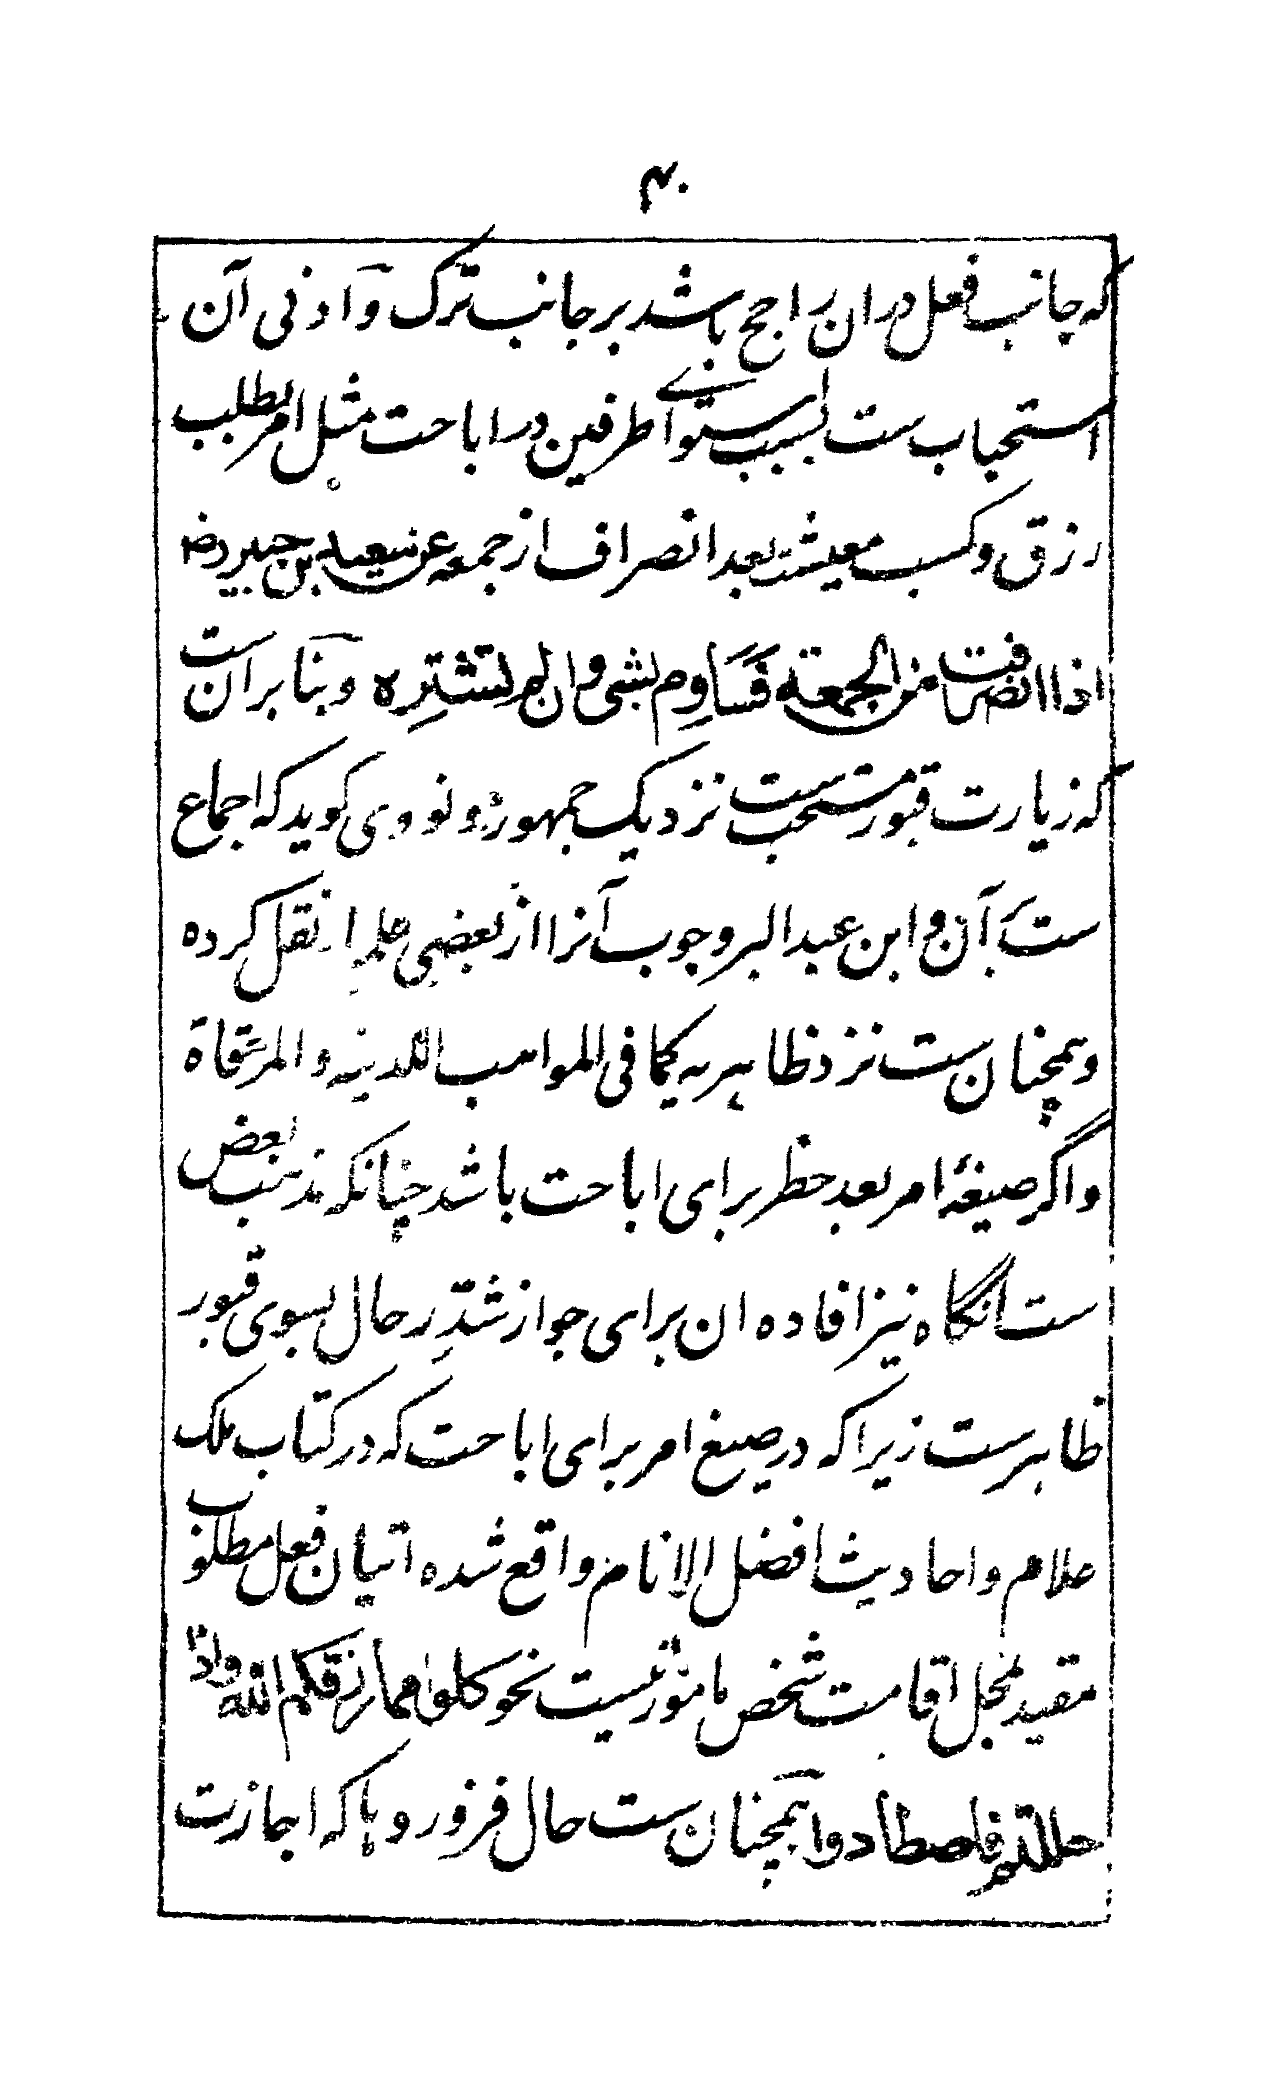 ۴۰
که جانب فعل دران راجح باشد بر جانب ترک و ادنی آن
استحباب ست بسبب استوای طرفین در اباحت مثل امر بطلب
رزق و کسب معیشت بعد انصراف از جمعه عن سعید بن جبیر رض
اذا انصرفت من الجمعة فَسَاوِم بشی وان لم تشتَرِه و بنابران ست
که زیارت قبور مستحب ست نزدیک جمهور و نووی گوید که اجماع
ست بَر آن و ابن عبد البر وجوب آنرا از بعضی علما نقل کرده
و همچنان ست نزد ظاهریه کما فی المواهب اللدنیه و المرقاة
و اگر صیغهٔ امر بعد حظر برای اباحت باشد چنانکه مذهب بعض
ست آنگاه نیز افاده ان برای جواز شدِّ رحال بسوی قبور
ظاهرست زیرا که در صیغ امر برای اباحت که در کتاب ملک
علام و احادیث افضل الانام واقع شده اتیان فعل مطلوب
مقید بمحل اقامت شخص مامور نیست نحو کلوا مما رزقکم الله واذا
حللتم فاصطادوا همچنان ست حال فزوروها که اجازت